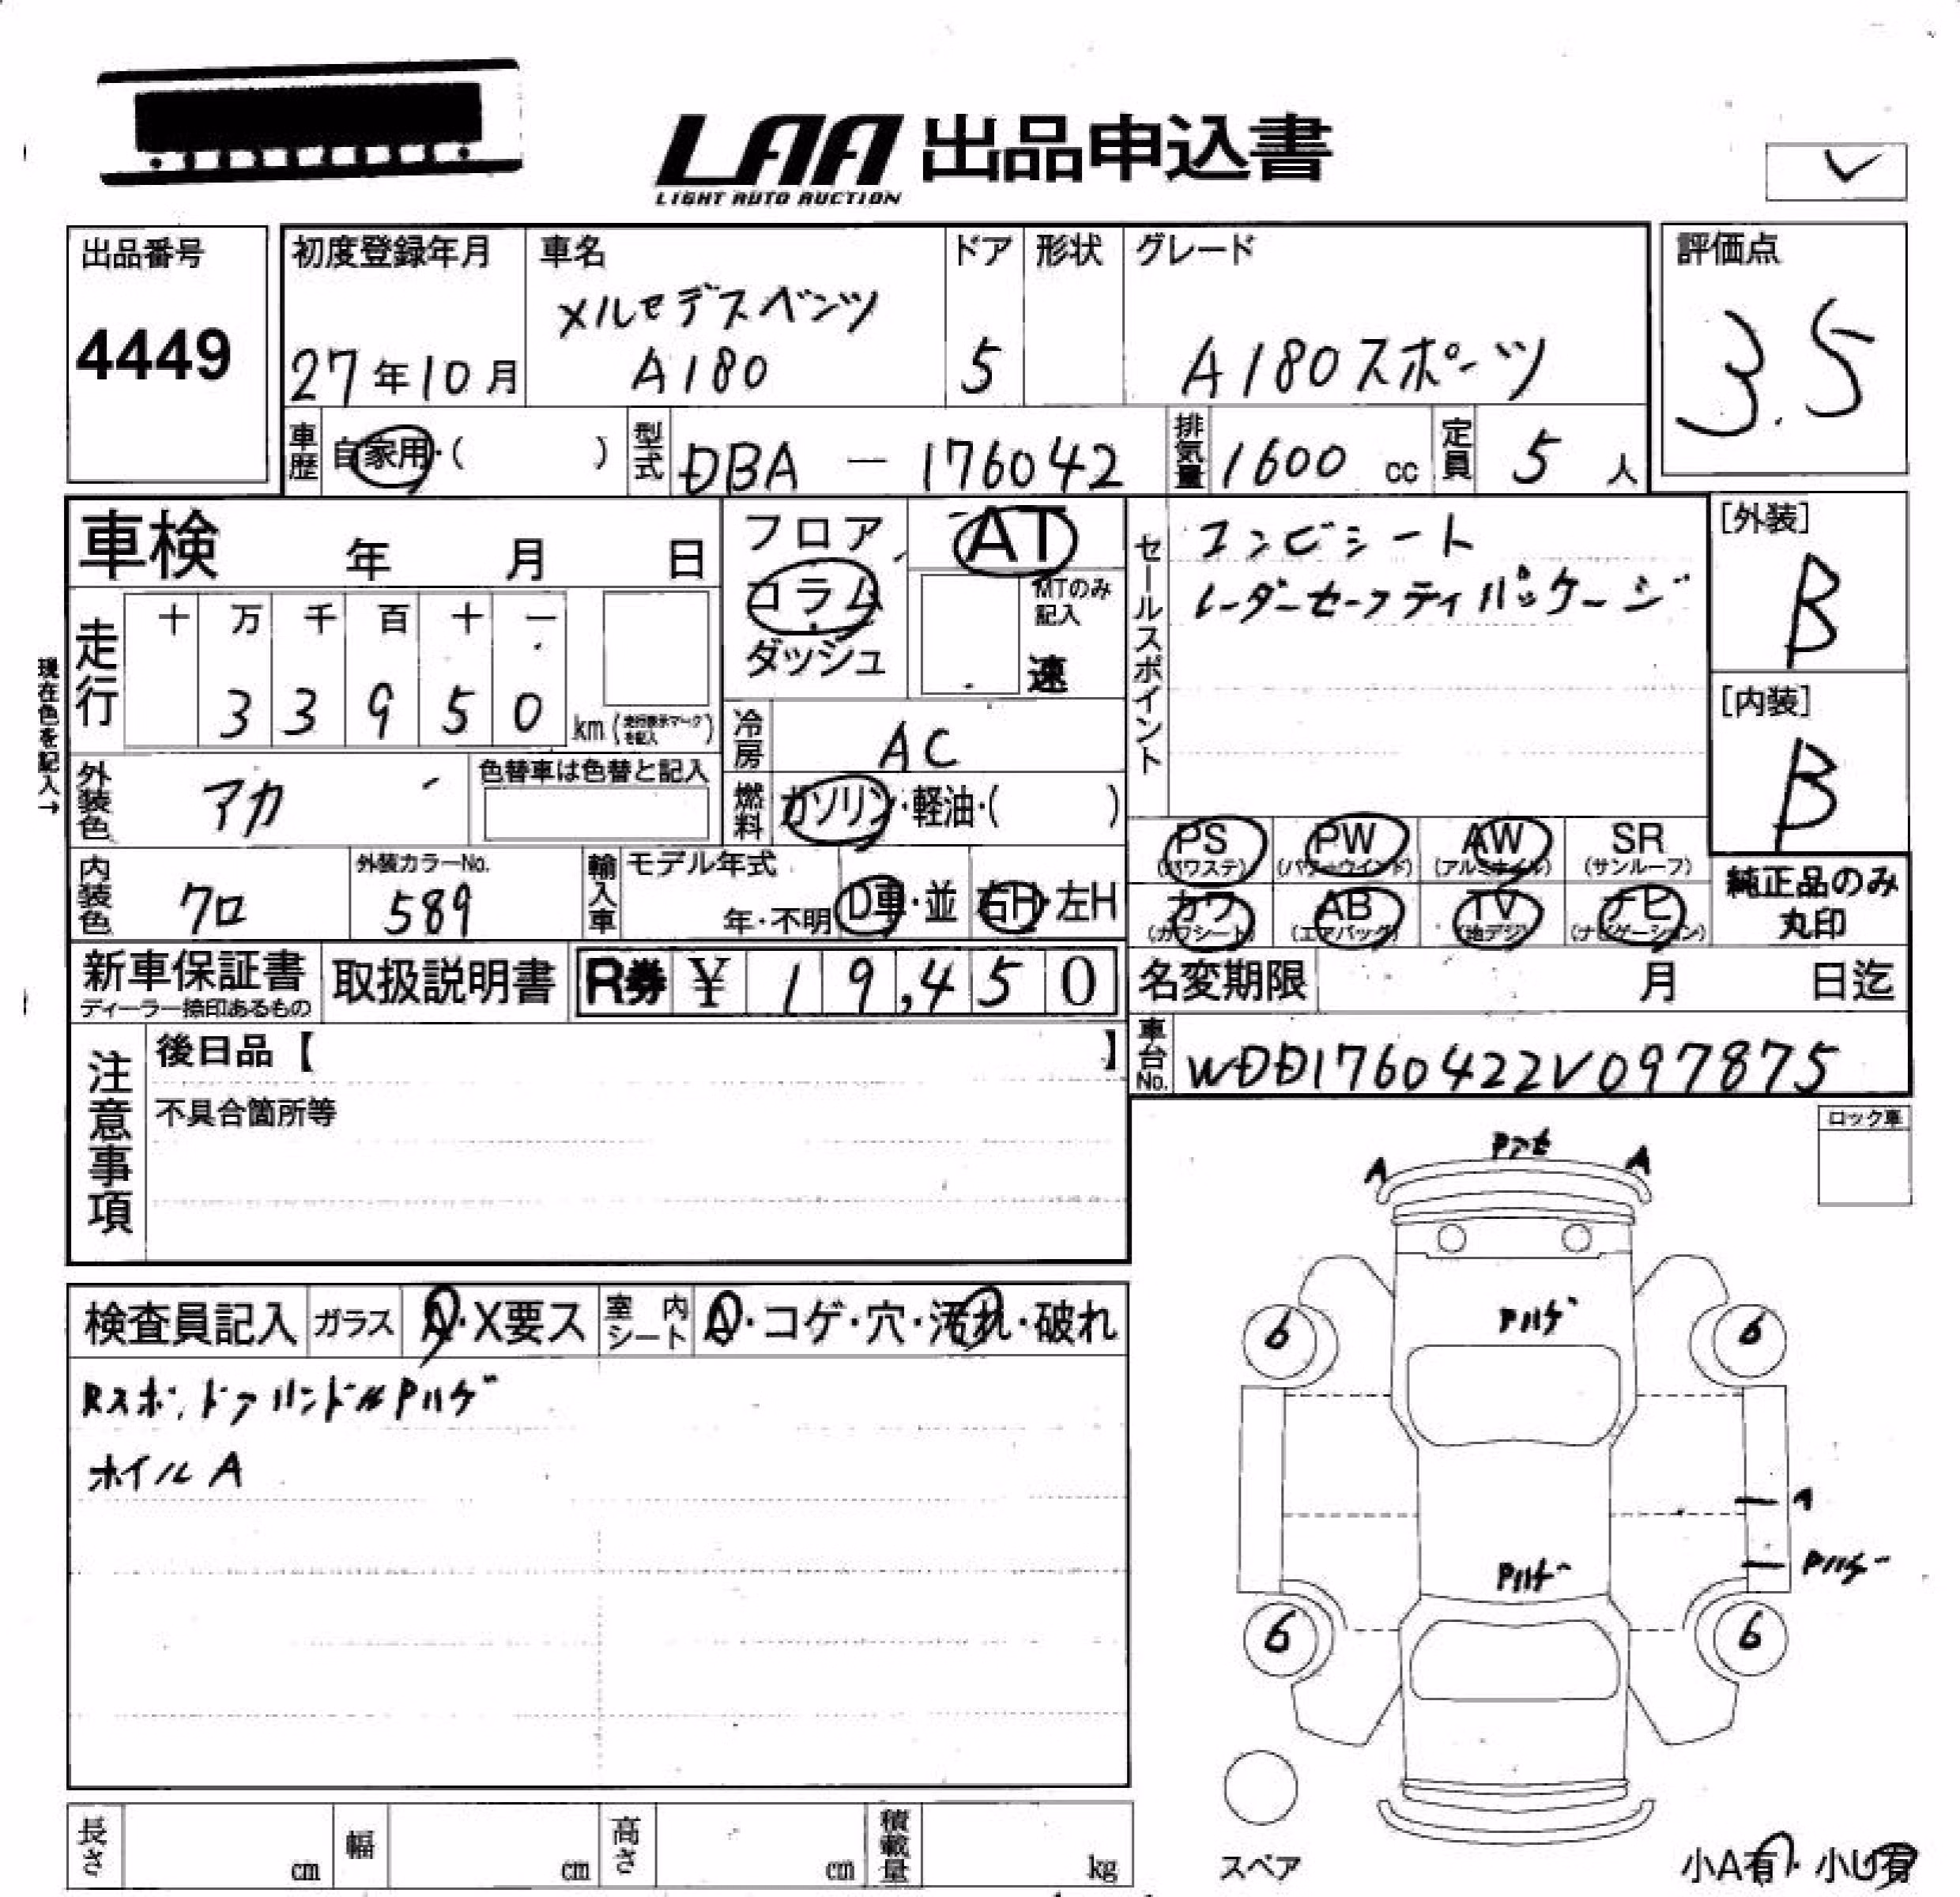 LAA 出品申込書
LIGHT AUTO AUCTION
出品番号
4449
初度登録年月
27年10月
車名
メルセデスベンツ
A180
ドア
5
形状
グレード
A180スポーツ
評価点
3.5
車歴 自家用・( )
型式 DBA － 176042
排気量 1600 cc
定員 5 人
車検 年 月 日
フロア
コラム
ダッシュ
AT
MTのみ
記入
速
セールスポイント
コンビシート
レーダーセーフティパッケージ
[外装]
B
[内装]
B
現在色を記入→
走行
十 万 千 百 十 一
3 3 9 5 0
km (走行表示マークを記入)
冷房 AC
外装色 アカ
色替車は色替と記入
燃料 ガソリン・軽油・( )
内装色 クロ
外装カラーNo.
589
輸入車
モデル年式
年・不明
D車・並
右H・左H
PS
(パワステ)
PW
(パワーウインド)
AW
(アルミホイル)
SR
(サンルーフ)
カワ
(カワシート)
AB
(エアバッグ)
TV
(地デジ)
ナビ
(ナビゲーション)
純正品のみ
丸印
新車保証書
ディーラー捺印あるもの
取扱説明書
R券 ¥ 19,450
名変期限 月 日迄
車台No. WDD1760422V097875
注意事項
後日品【 】
不具合箇所等
ロック車
検査員記入
ガラス A・X要ス
室内シート A・コゲ・穴・汚れ・破れ
Rスポ、ドアハンドルPハゲ
ホイルA
A
A
Pハゲ
6
6
Pハゲ
Pハゲ
6
6
スペア
小A有・小U有
長さ cm
幅 cm
高さ cm
積載量 kg